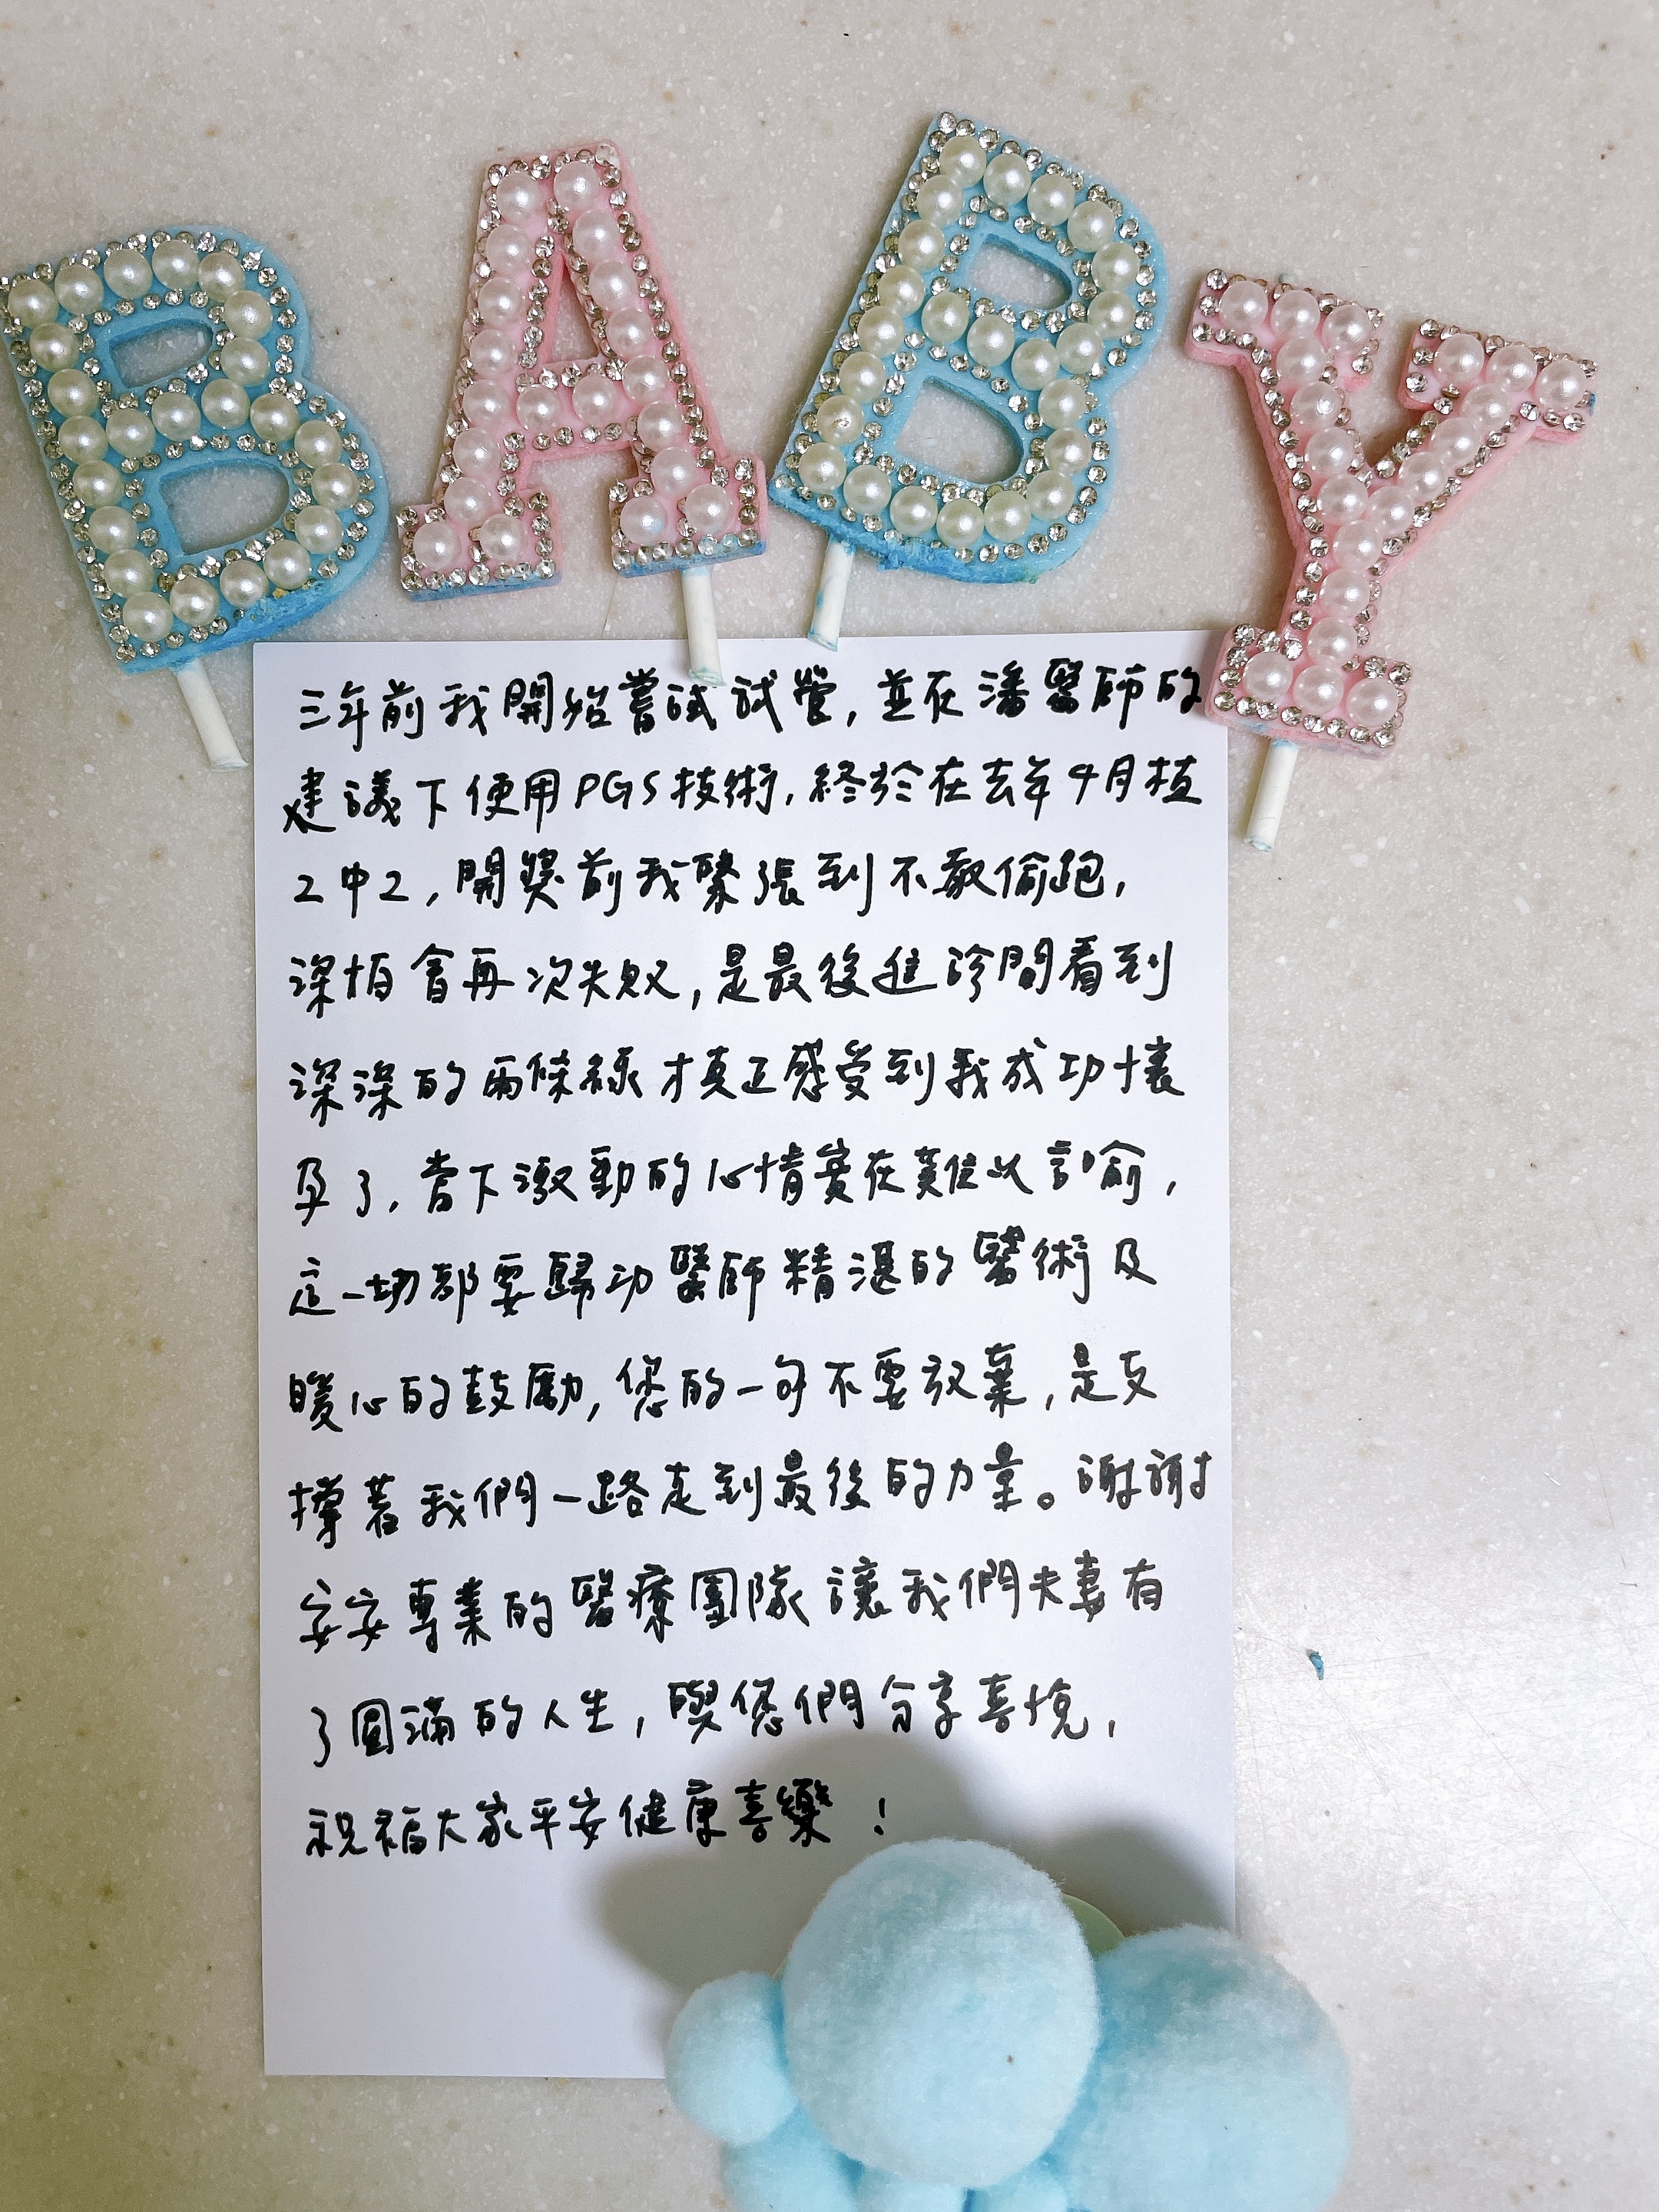 BABY
三年前我開始嘗試試管,並在潘醫師的
建議下使用PGS技術,終於在去年4月植
2中2,開獎前我緊張到不敢偷跑,
深怕會再次失敗,是最後進診間看到
深深的兩條線才真正感受到我成功懷
孕了,當下激動的心情實在難以言喻,
這一切都要歸功醫師精湛的醫術及
暖心的鼓勵,您的一句不要放棄,是支
撐著我們一路走到最後的力量。謝謝
安安專業的醫療團隊讓我們夫妻有
了圓滿的人生,與您們分享喜悅,
祝福大家平安健康喜樂!